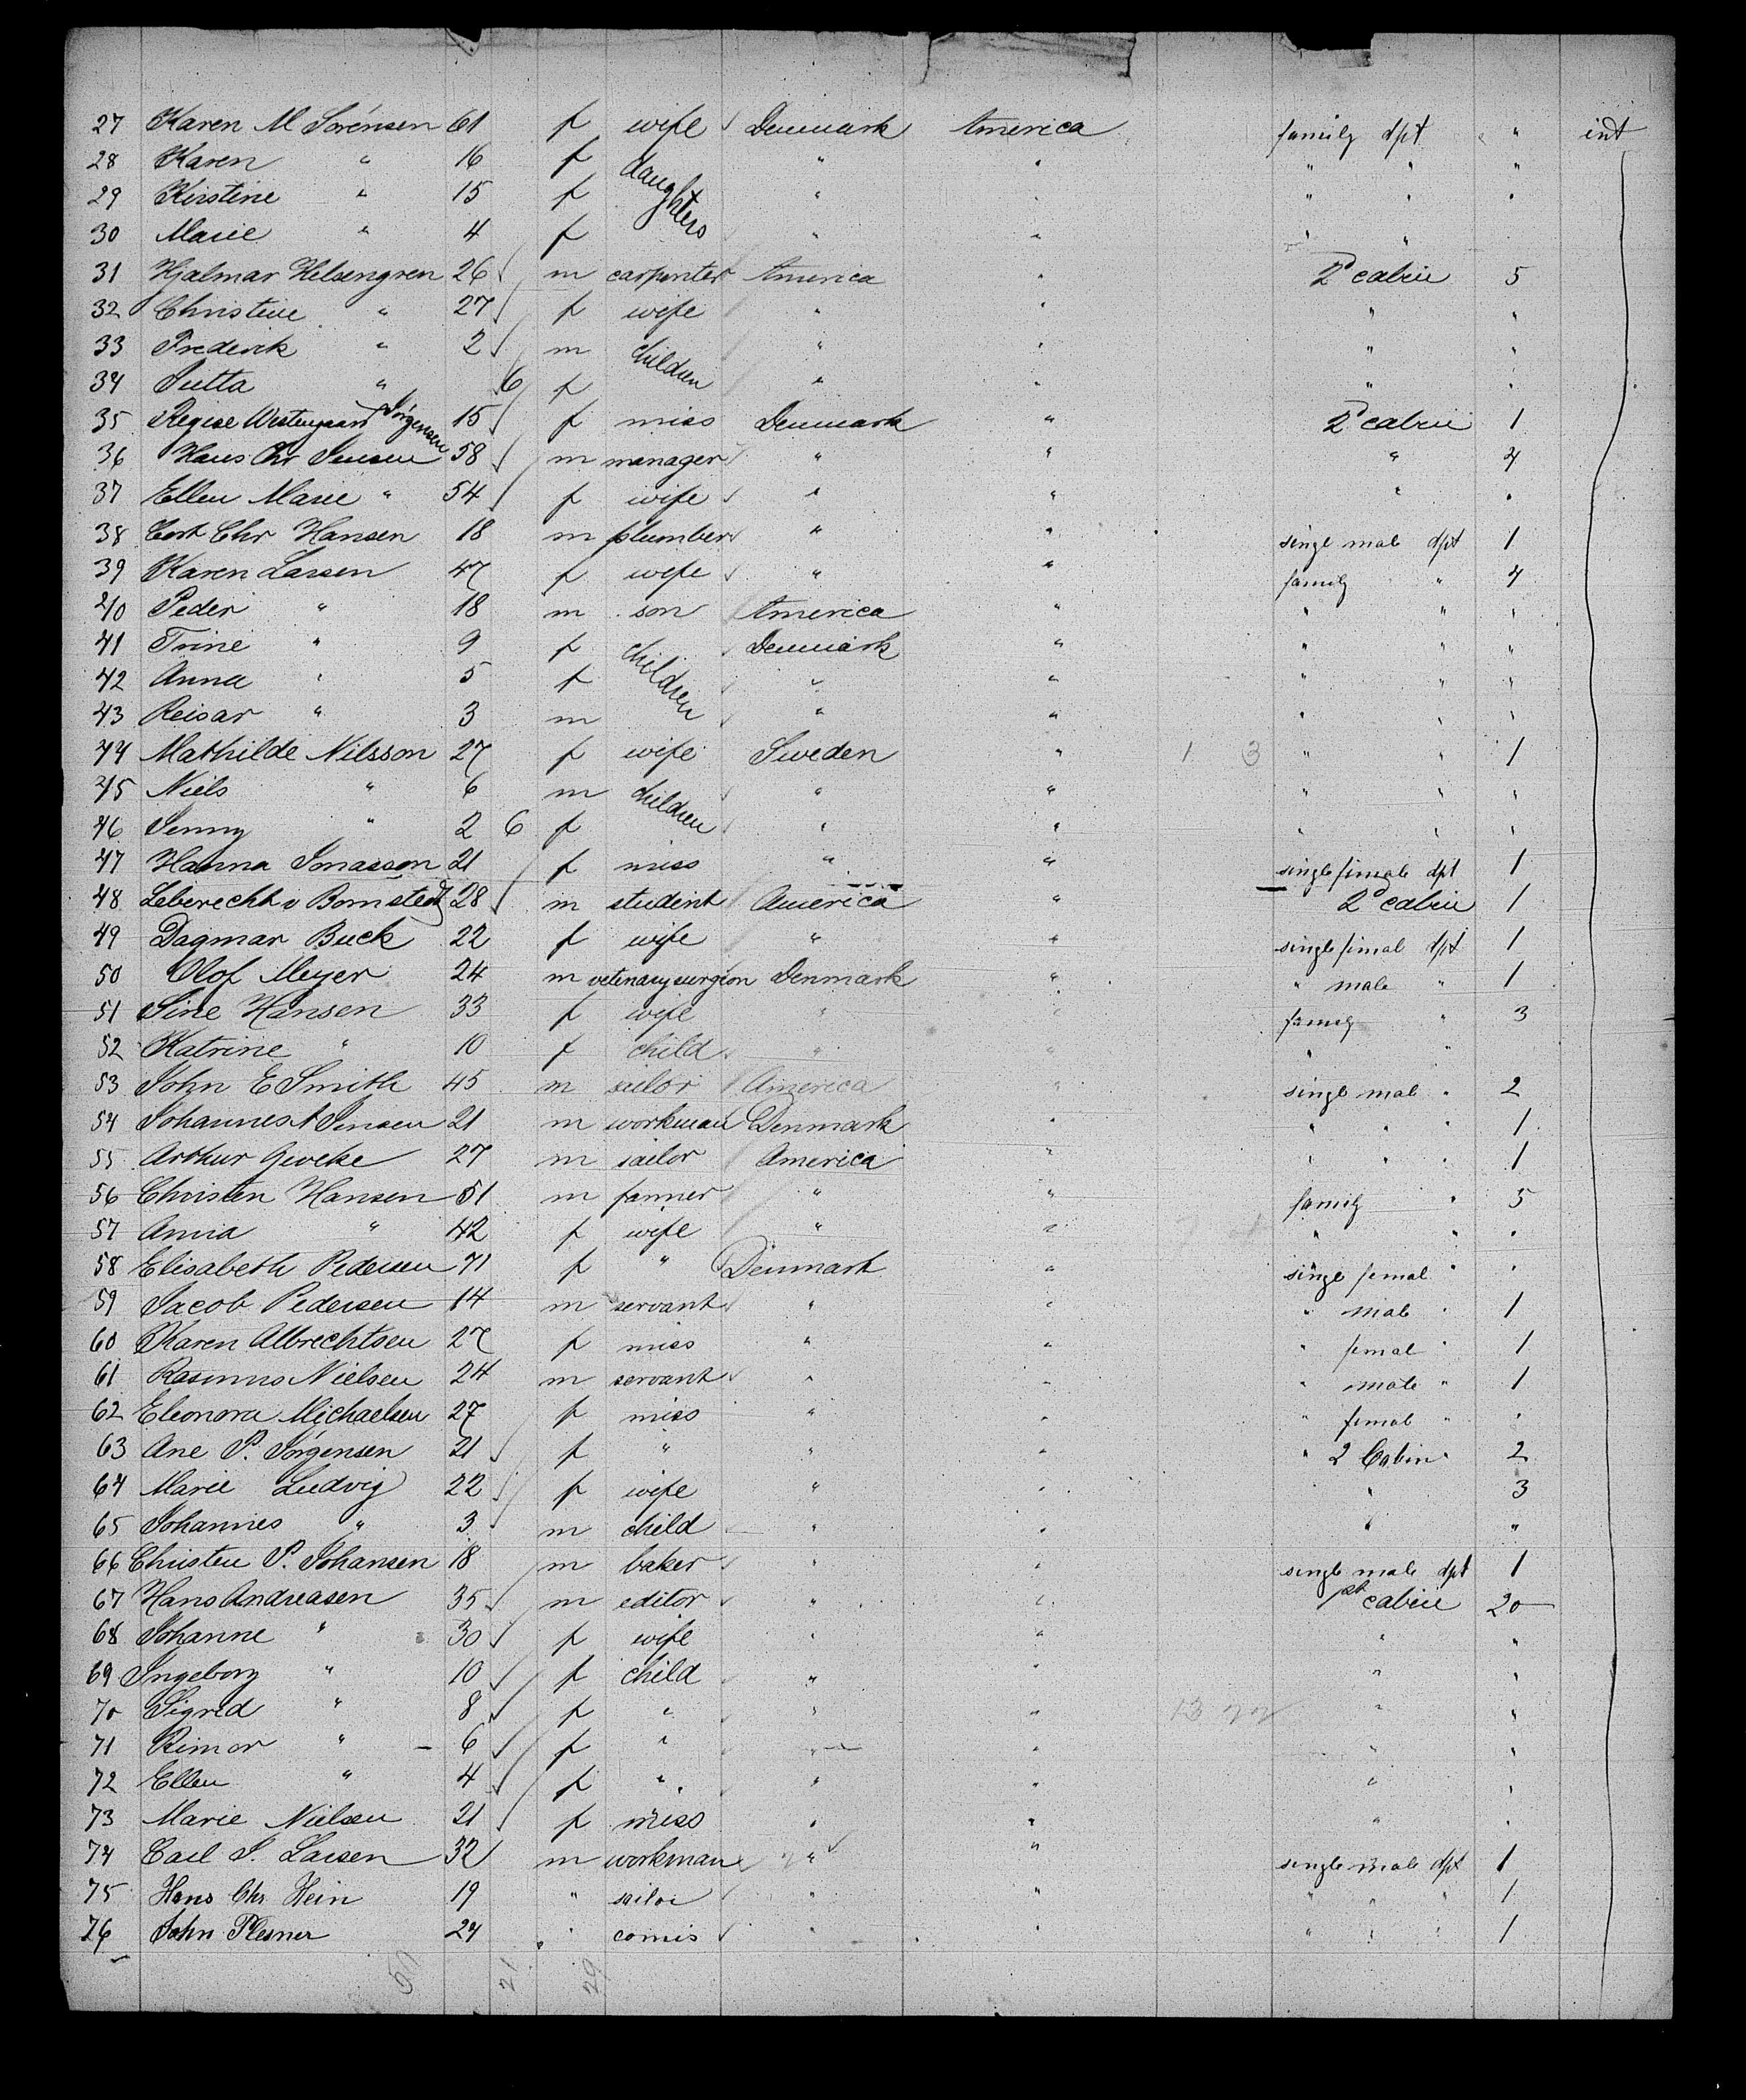 27 Karen M Sörensen 61 f wife Denmark America family dpt " " int
28 Karen " 16 f daughters " " " " "
29 Kirstine " 15 f " " " " "
30 Marie " 4 f " " " "
31 Hjalmar Helsengren 26 m carpenter America " 2d cabin 5
32 Christine " 27 f wife " " " "
33 Frederik " 2 m children " " " "
34 Jutta " 6 f " " " "
35 Regise Westergaard Jörgensen 15 f miss Denmark " 2d cabin 1
36 Hans Chr Jensen 58 m manager " " " 4
37 Ellen Marie " 54 f wife " " " "
38 Chr Hansen 18 m plumber " " singl mal dpt 1
39 Karen Larsen 47 f wife " " family " 4
40 Peder " 18 m son America " " " "
41 Trine " 9 f children Denmark " " " "
42 Anna " 5 f " " " " "
43 Reisar " 3 m " " " " "
44 Mathilde Nilsson 27 f wife Sweden " 1 3 " " 1
45 Niels " 6 m children " " " " "
46 Jenny " 2 6 f " " " " "
47 Hanna Jonasson 21 f miss " " single fimale dpt 1
48 Leberecht v Bornstedt 28 m student America " 2d cabin 1
49 Dagmar Buck 22 f wife " " single fimal dpt 1
50 Olof Meyer 24 m vetenary surgeon Denmark " " male " 1
51 Sine Hansen 33 f wife " " family " 3
52 Katrine " 10 f child " " " "
53 John E Smith 45 m sailor America " singl mal " 2
54 Johannes A Jensen 21 m workman Denmark " " " " 1
55 Arthur Geveke 27 m sailor America " " " " 1
56 Christen Hansen 51 m farmer " " family " 5
57 Anna " 42 f wife " " " " "
58 Elisabeth Pedersen 71 f " Denmark " singe femal " "
59 Jacob Pedersen 14 m servant " " " mal " 1
60 Karen Albrechtsen 27 f miss " " " femal " 1
61 Rasmus Nielsen 24 m servant " " " male " 1
62 Eleonora Michaelsen 27 f miss " " " femal " "
63 Ane P. Jörgensen 21 f " " " " 2 Cabin " 2
64 Marie Ludvig 22 f wife " " " 3
65 Johannes " 3 m child " " " "
66 Christen P. Johansen 18 m baker " " single male dpt 1
67 Hans Andreasen 35 m editor " " 1st cabin 20
68 Johanne " 30 f wife " " " "
69 Ingeborg " 10 f child " " " "
70 Sigred " 8 f " " " " "
71 Rimor " 6 f " " " " "
72 Ellen " 4 f " " " " "
73 Marie Nielsen 21 f miss " " " "
74 Carl J. Larsen 32 m workman " " single male dpt 1
75 Hans Chr Hein 19 " sailor " " " " " 1
76 John Plesner 24 " comis " " " " " 1
21 29